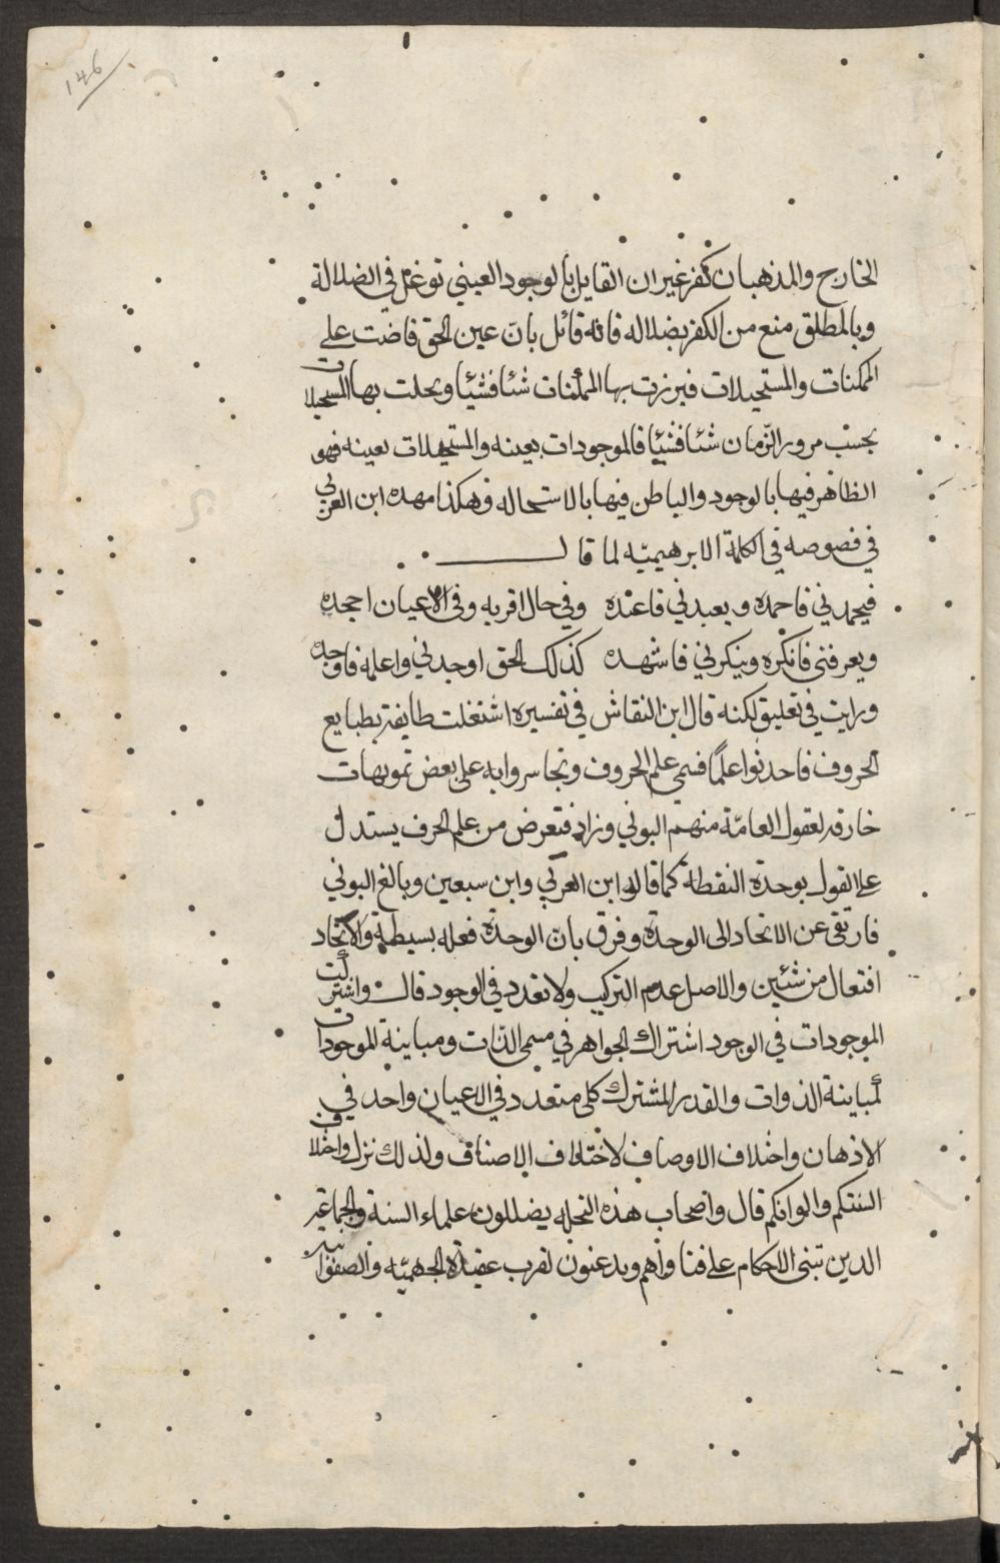 ١٤٦
الخارج والمذهبان كفر غير ان القايل بالوجود العيني توغل في الضلالة
وبالمطلق منع من الكفر بضلاله فانه قائل بان عين الحق فاضت على
الممكنات والمستحيلات فبرزت بها الممكنات شئا فشئيا وبحلت بها المستحيلات
بحسب مرور الزمان شئا فشئيا فالموجودات بعينه والمستحيلات بعينه فهو
الظاهر فيها بالوجود والباطن فيها بالاستحاله وهكذا مهده ابن العربي
في فصوصه في الكلمة الابرهيميّه لما قال
فيحمدني فاحمده ويعبدني فاعبده وفي حال اقر به وفي الاعيان اجحده
ويعرفني فانكره وينكرني فاشهده كذلك الحق اوجدني واعلمه فاوجده
ورايت في تعليق لكنه قال ابن النقاش في تفسيره اشتغلت طايفة بطبايع
الحروف فاحدثوا علمًا فسمي علم الحروف وتجاسروا به على بعض تمويهات
خارقه لعقول العامّة منهم البوني وزاد فتعرض من علم الحرف يستدل
على القول بوحدة النقطة كما قاله ابن العربي وابن سبعين وبالغ البوني
فارتقى عن الاتحاد الى الوحدة وفرق بان الوحدة فعله بسيطة والاتحاد
افتعال من شئين والاصل عدم التركيب ولا تعدد في الوجود قال واشتركت
الموجودات في الوجود اشتراك الجواهر في مسمى الذات ومباينة الموجودات
لمباينة الذوات والقدر المشترك كلي متعدد في الاعيان واحد في
الاذهان واختلاف الاوصاف لاختلاف الاصناف ولذلك نزل واختلاف
السنتكم والوانكم قال واصحاب هذه النحله يضللون علماء السنة والجماعة
الذين تبنى الاحكام على فتاواهم ويدعنون لقرب عقيدة الجهميّه والصفواتيه